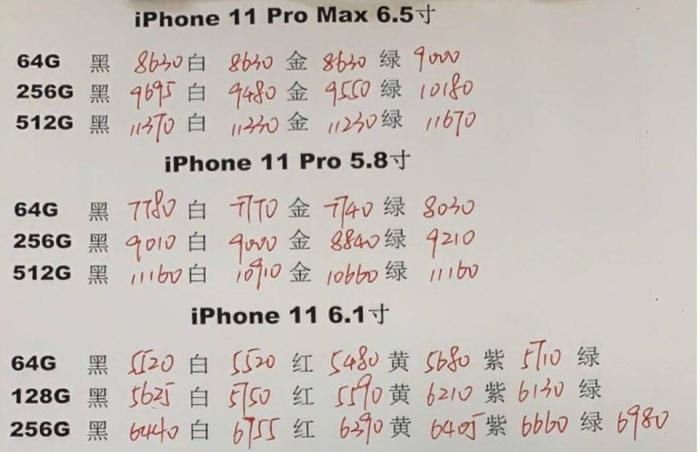 iPhone 11 Pro Max 6.5寸
64G 黑 8630 白 8630 金 8630 绿 9000
256G 黑 9695 白 9480 金 9550 绿 10180
512G 黑 11370 白 11330 金 11230 绿 11670
iPhone 11 Pro 5.8寸
64G 黑 7780 白 7770 金 7740 绿 8030
256G 黑 9010 白 9000 金 8840 绿 9210
512G 黑 11160 白 10910 金 10660 绿 11160
iPhone 11 6.1寸
64G 黑 5520 白 5520 红 5480 黄 5680 紫 5710 绿
128G 黑 5625 白 5750 红 5590 黄 6210 紫 6130 绿
256G 黑 6440 白 6755 红 6390 黄 6405 紫 6660 绿 6980